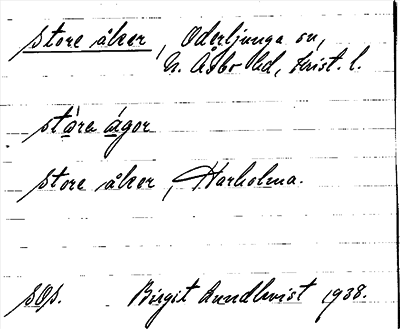 Store åker, Oderljunga sn,
N. Åsbo hd, Krist. l.
stǻra ágor
Store åker, Harholma.
sOp. Birgit Lundkvist 1938.